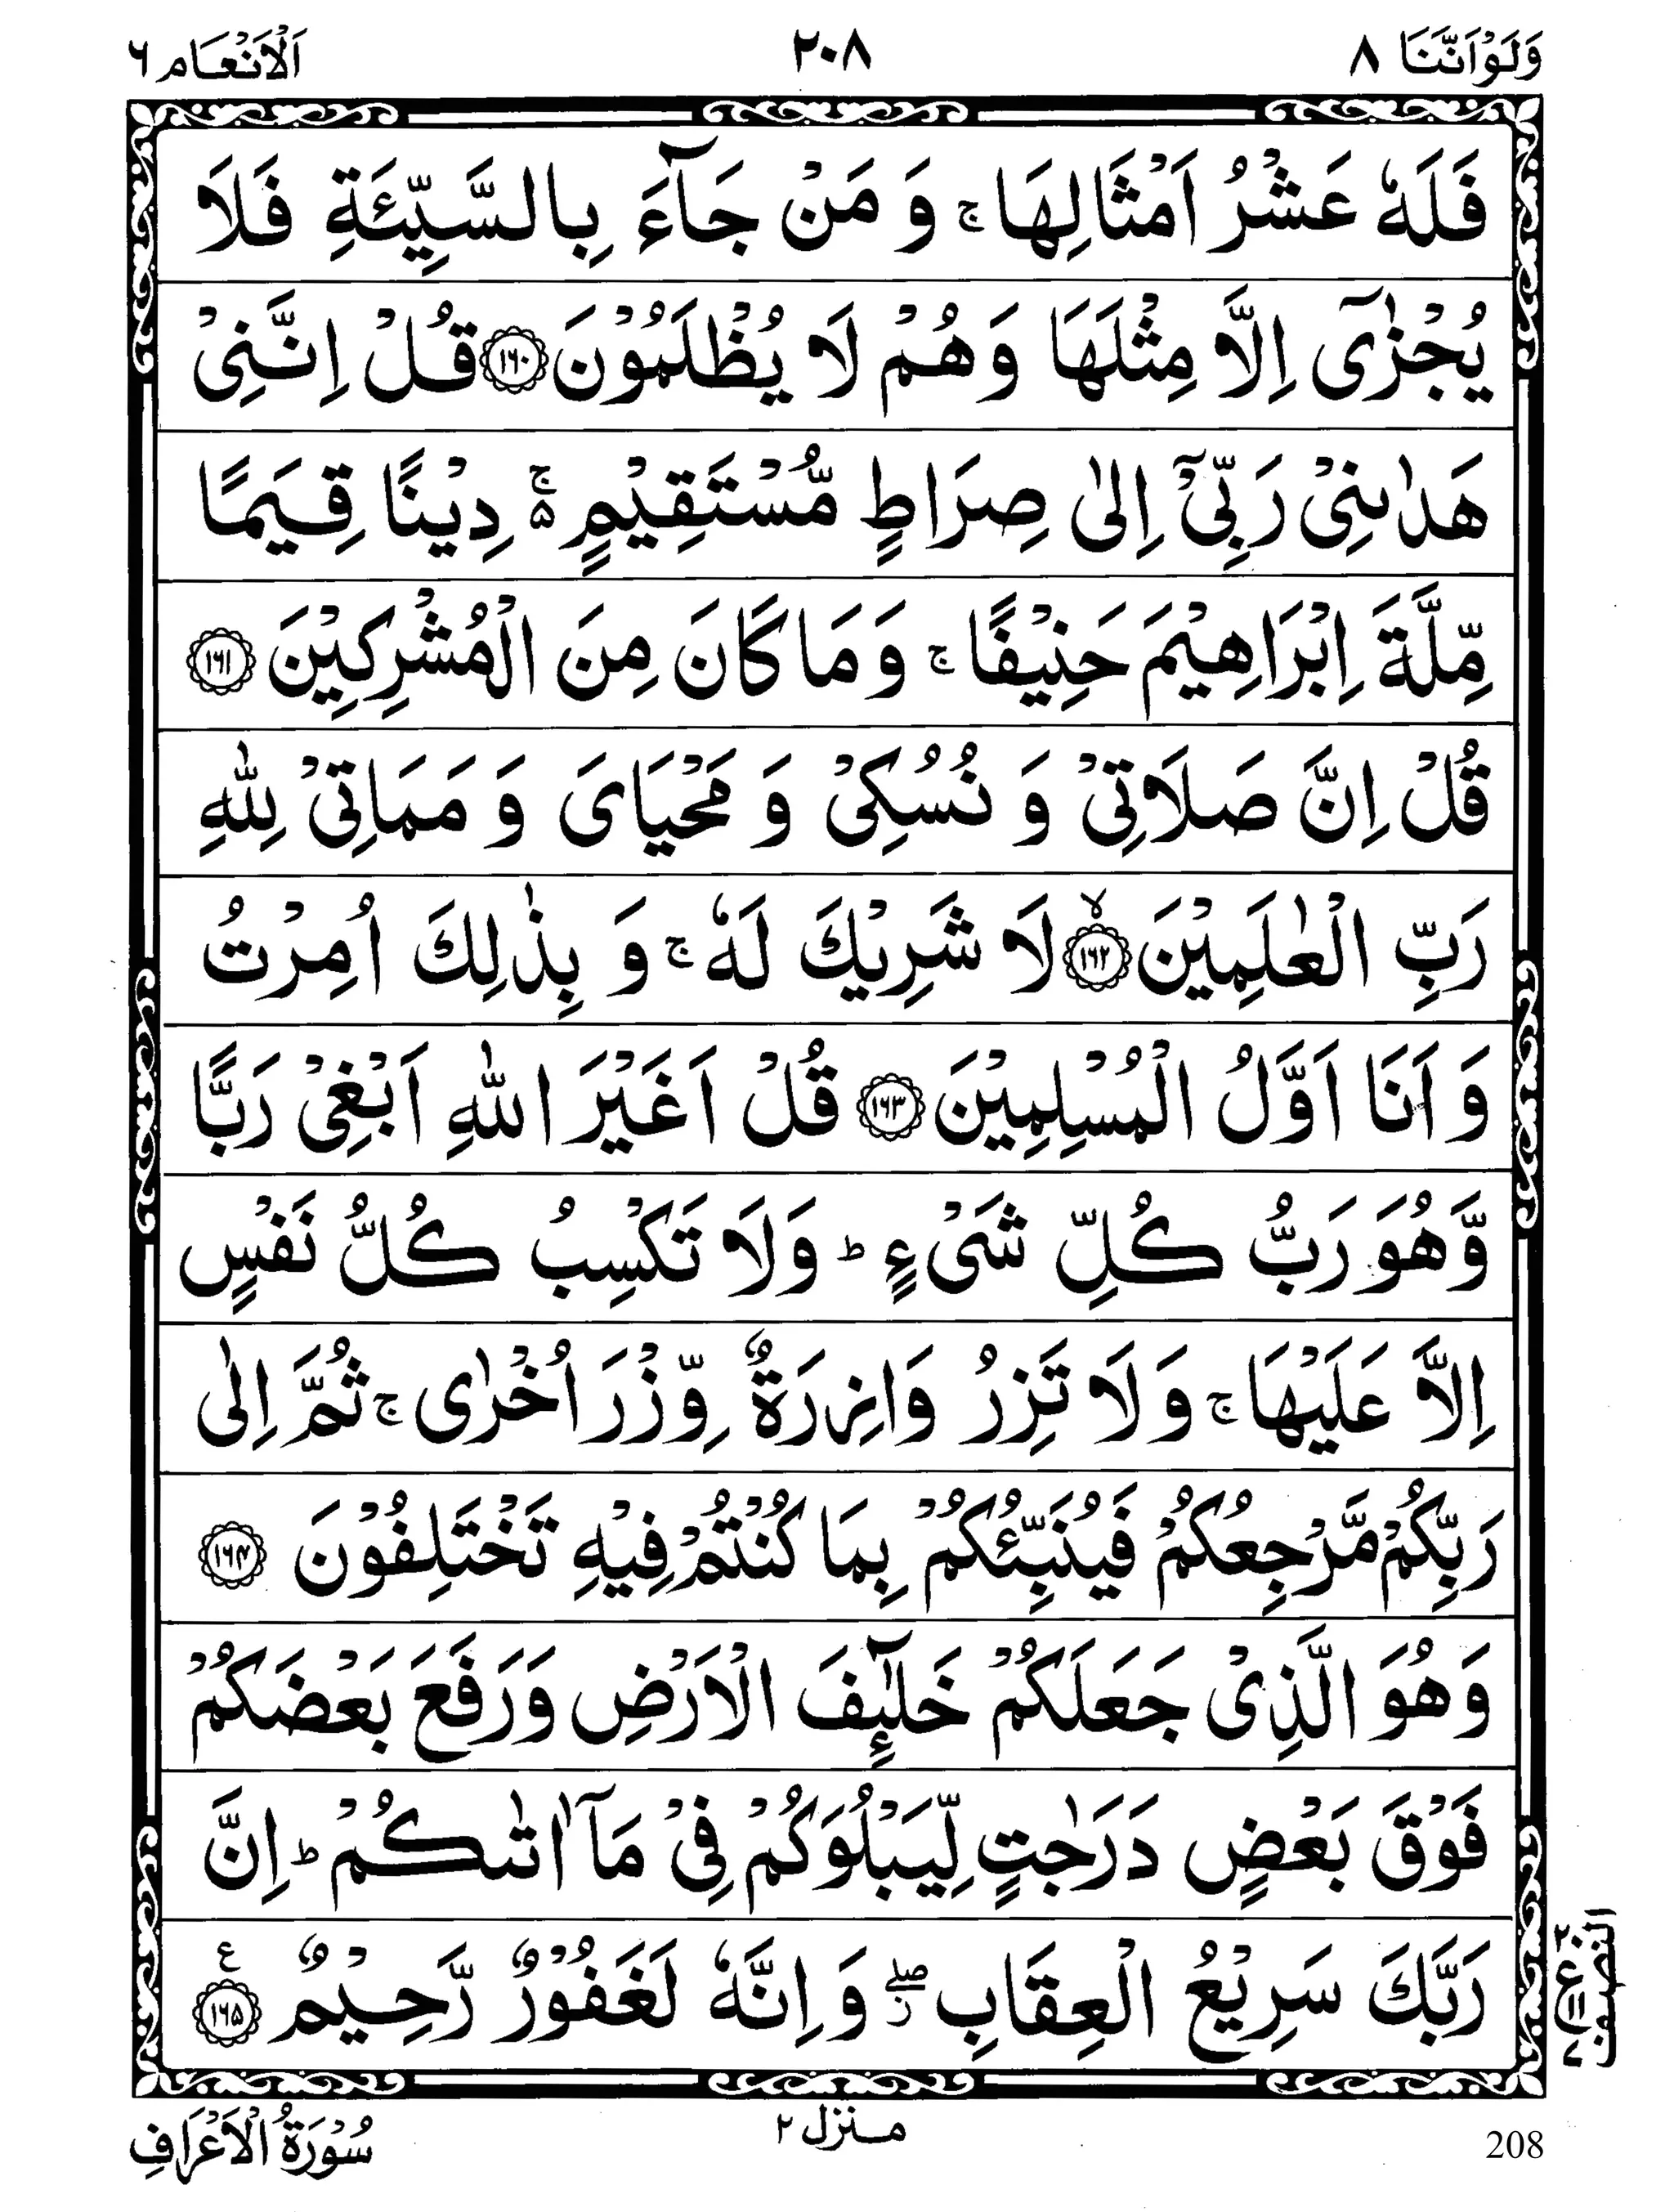 وَلَوْاَنَّنَا ٨ ٢٠٨ اَلْاَنْعَام ٦
فَلَهٗ عَشْرُ اَمْثَالِهَا ۚ وَ مَنْ جَآءَ بِالسَّيِّئَةِ فَلَا
يُجْزٰٓى اِلَّا مِثْلَهَا وَهُمْ لَا يُظْلَمُوْنَ ﴿۱۶۰﴾ قُلْ اِنَّنِىْ
هَدٰىنِىْ رَبِّىْٓ اِلٰى صِرَاطٍ مُّسْتَقِيْمٍ ۚ۵ دِيْنًا قِيَمًا
مِّلَّةَ اِبْرَاهِيْمَ حَنِيْفًا ۚ وَ مَا كَانَ مِنَ الْمُشْرِكِيْنَ ﴿۱۶۱﴾
قُلْ اِنَّ صَلَاتِىْ وَ نُسُكِىْ وَ مَحْيَاىَ وَ مَمَاتِىْ لِلّٰهِ
رَبِّ الْعٰلَمِيْنَ ﴿۱۶۲﴾ۙ لَا شَرِيْكَ لَهٗ ۚ وَ بِذٰلِكَ اُمِرْتُ
وَ اَنَا اَوَّلُ الْمُسْلِمِيْنَ ﴿۱۶۳﴾ قُلْ اَغَيْرَ اللّٰهِ اَبْغِىْ رَبًّا
وَّهُوَ رَبُّ كُلِّ شَىْءٍ ؕ وَلَا تَكْسِبُ كُلُّ نَفْسٍ
اِلَّا عَلَيْهَا ۚ وَ لَا تَزِرُ وَازِرَةٌ وِّزْرَ اُخْرٰى ۚ ثُمَّ اِلٰى
رَبِّكُمْ مَّرْجِعُكُمْ فَيُنَبِّئُكُمْ بِمَا كُنْتُمْ فِيْهِ تَخْتَلِفُوْنَ ﴿۱۶۴﴾
وَ هُوَ الَّذِىْ جَعَلَكُمْ خَلٰٓئِفَ الْاَرْضِ وَرَفَعَ بَعْضَكُمْ
فَوْقَ بَعْضٍ دَرَجٰتٍ لِّيَبْلُوَكُمْ فِىْ مَاۤ اٰتٰىكُمْ ؕ اِنَّ
رَبَّكَ سَرِيْعُ الْعِقَابِ ۖز وَ اِنَّهٗ لَغَفُوْرٌ رَّحِيْمٌ ﴿۱۶۵﴾ ع
النصف
سُوْرَةُ الْاَعْرَافِ منزل ۲ 208